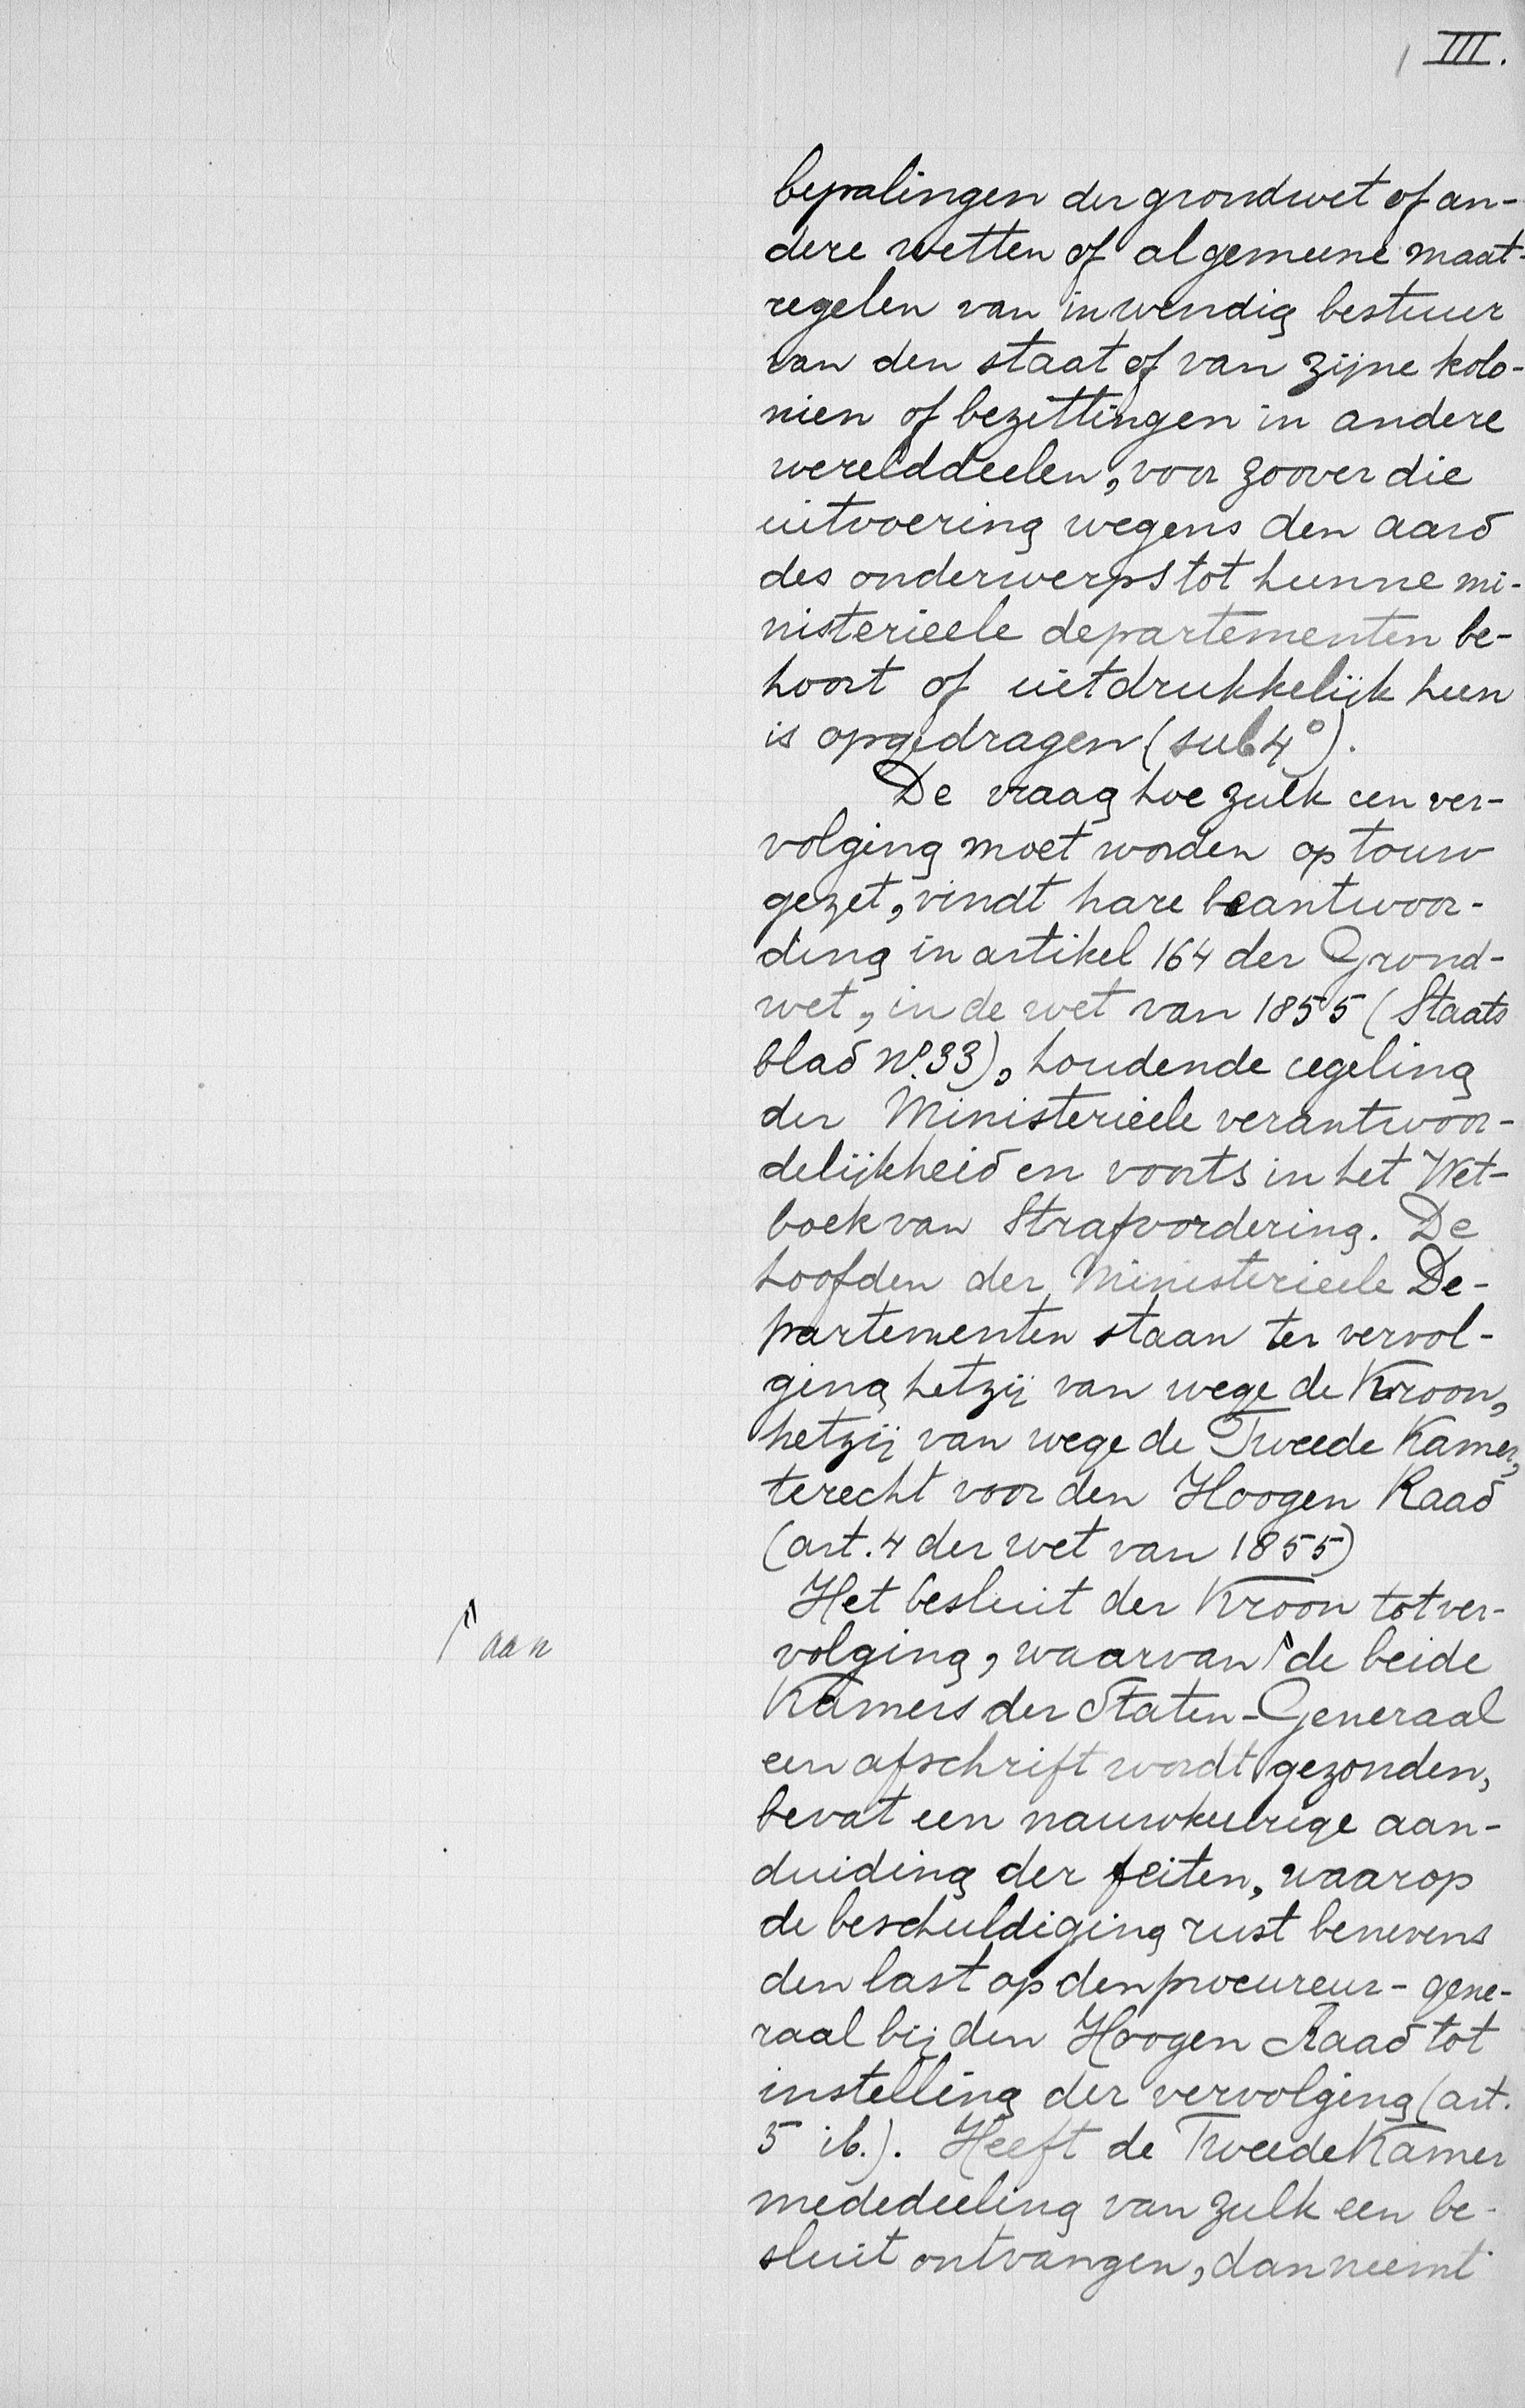 III.
bepalingen der grondwet of an-
dere wetten of algemeene maat-
regelen van inwendig bestuur
van den staat of van zijne kolo-
nien of bezittingen in andere
werelddeelen, voor zoover die
uitvoering wegens den aard
des onderwerps tot hunne mi-
nisterieele departementen be-
hoort of uitdrukkelijk hun
is opgedragen (sub 4°).
De vraag hoe zulk een ver-
volging moet worden op touw
gezet, vindt hare beantwoor-
ding in artikel 164 der Grond-
wet, in de wet van 1855 (Staats
blad No. 33), houdende regeling
der Ministerieele verantwoor-
delijkheid en voorts in het Wet-
boek van Strafvordering. De
hoofden der Ministerieele De-
partementen staan ter vervol-
ging hetzij van wege de Kroon,
hetzij van wege de Tweede Kamer,
terecht voor den Hoogen Raad
(art. 4 der wet van 1855)
Het besluit der Kroon tot ver-
aan
volging, waarvan de beide
Kamers der Staten-Generaal
een afschrift wordt gezonden,
bevat een nauwkeurige aan-
duiding der feiten, waarop
de beschuldiging rust benevens
den last op den procureur-gene-
raal bij den Hoogen Raad tot
instelling der vervolging (art.
5 ib.). Heeft de Tweede Kamer
mededeeling van zulk een be-
sluit ontvangen, dan neemt